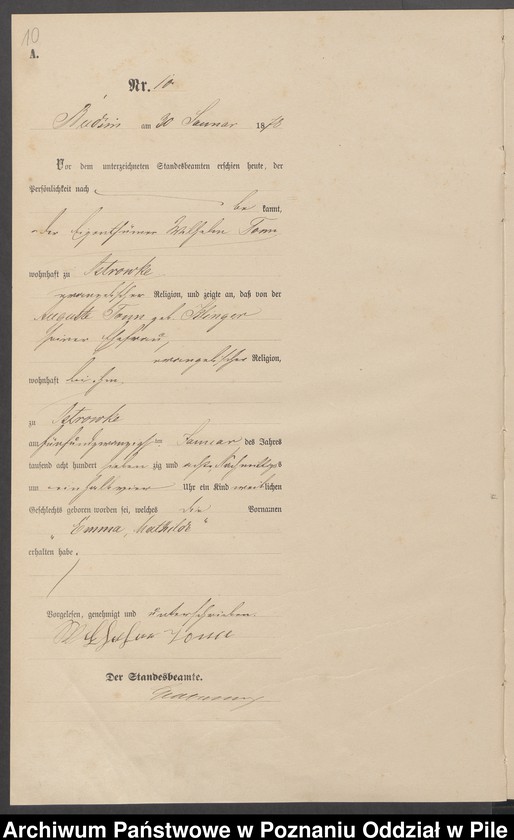 10
A.
Nr. 10
am 30 Januar 1878
Vor dem unterzeichneten Standesbeamten erschien heute, der
Persönlichkeit nach
be kannt,
der Eigenthümer Wilhelm Tonn
wohnhaft zu Petrowke
evangelischer Religion, und zeigte an, daß von der
Auguste Tonn geb. Klinger
seiner Ehefrau,
evangelischer Religion,
wohnhaft bei ihm
zu Petrowke
am fünfundzwanzigsten Januar des Jahres
tausend acht hundert sieben zig und acht Nachmittags
um einhalb vier Uhr ein Kind weiblichen
Geschlechts geboren worden sei, welches die Vornamen
„Emma, Mathilde“
erhalten habe.
Vorgelesen, genehmigt und unterschrieben
Wilhelm Tonn
Der Standesbeamte.
Archiwum Państwowe w Poznaniu Oddział w Pile